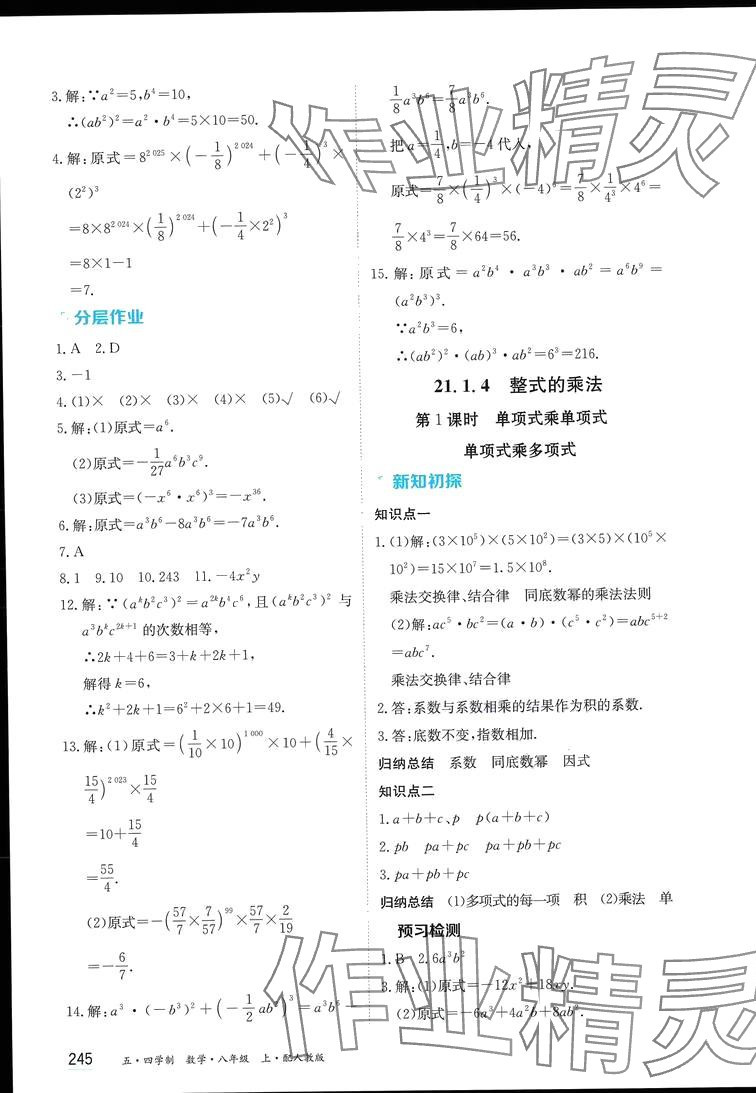 3.解:∵a²=5,b⁴=10,
∴(ab²)²=a²·b⁴=5×10=50.
4.解:原式=8²⁰²⁵×(-1/8)²⁰²⁴+(-1/4)³×
(2²)³
=8×8²⁰²⁴×(1/8)²⁰²⁴+(-1/4×2²)³
=8×1-1
=7.
分层作业
1.A 2.D
3.-1
4.(1)× (2)× (3)× (4)× (5)√ (6)√
5.解:(1)原式=a⁶.
(2)原式=-1/27a⁶b³c⁹.
(3)原式=(-x⁶·x⁶)³=-x³⁶.
6.解:原式=a³b⁶-8a³b⁶=-7a³b⁶.
7.A
8.1 9.10 10.243 11.-4x²y
12.解:∵(aᵏb²c³)²=a²ᵏb⁴c⁶,且(aᵏb²c³)²与
a³bᵏc²ᵏ⁺¹的次数相等,
∴2k+4+6=3+k+2k+1,
解得k=6,
∴k²+2k+1=6²+2×6+1=49.
13.解:(1)原式=(1/10×10)¹⁰⁰⁰×10+(4/15×
15/4)²⁰²³×15/4
=10+15/4
=55/4.
(2)原式=-(57/7×7/57)⁹⁹×57/7×2/19
=-6/7.
14.解:a³·(-b³)²+(-1/2ab²)³=a³b⁶-
1/8a³b⁶=7/8a³b⁶.
把a=1/4,b=-4代入,
原式=7/8×(1/4)³×(-4)⁶=7/8×1/4³×4⁶=
7/8×4³=7/8×64=56.
15.解:原式=a²b⁴·a³b³·ab²=a⁶b⁹=
(a²b³)³.
∵a²b³=6,
∴(ab²)²·(ab)³·ab²=6³=216.
21.1.4 整式的乘法
第1课时 单项式乘单项式
单项式乘多项式
新知初探
知识点一
1.(1)解:(3×10⁵)×(5×10²)=(3×5)×(10⁵×
10²)=15×10⁷=1.5×10⁸.
乘法交换律、结合律 同底数幂的乘法法则
(2)解:ac⁵·bc²=(a·b)·(c⁵·c²)=abc⁵⁺²
=abc⁷.
乘法交换律、结合律
2.答:系数与系数相乘的结果作为积的系数.
3.答:底数不变,指数相加.
归纳总结 系数 同底数幂 因式
知识点二
1.a+b+c、p p(a+b+c)
2.pb pa+pc pa+pb+pc
3.pa+pb+pc
归纳总结 (1)多项式的每一项 积 (2)乘法 单
预习检测
1.B 2.6a³b²
3.解:(1)原式=-12x²+18xy.
(2)原式=-6a³+4a²b+8ab².
245 五·四学制 数学·八年级 上·配人教版
作业精灵
作业精灵